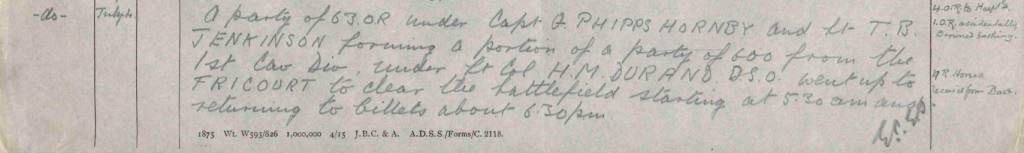 -do- July 5th A party of 63. OR under Capt G. PHIPPS HORNBY and Lt T. B.
JENKINSON forming a portion of a party of 600 from the
1st Cav Div, under Lt Col. H.M. DURAND D.S.O. went up to
FRICOURT to clear the battlefield starting at 5.30 am and
returning to billets about 6.30pm
4 O.R. to Hospl.
1. O.R. accidentally
Drowned bathing.
R Horses
received from Base.
1875 Wt. W593/826 1,000,000 4/15 J.B.C. & A. A.D.S.S./Forms/C. 2118.